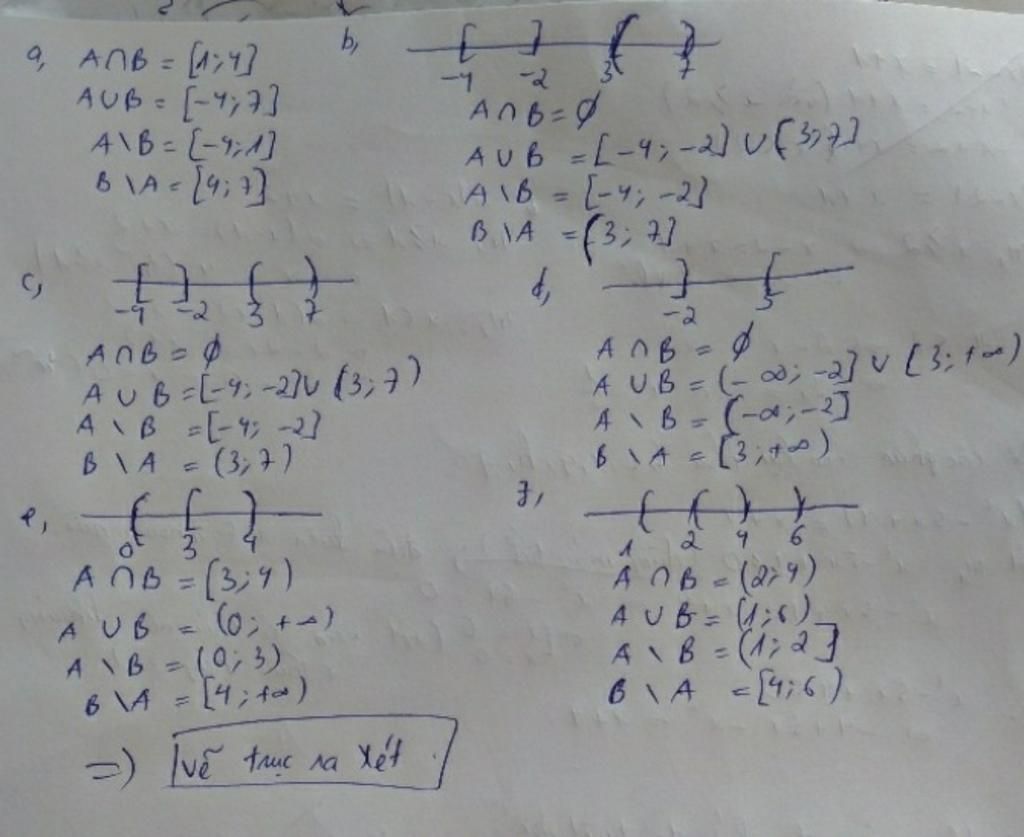 a, A∩B = [1;4]
A∪B = [-4;7]
A\B = [-4;1]
B\A = [4;7]
b,
-4 -2 3 7
A∩B = ∅
A∪B = [-4; -2] ∪ (3;7]
A\B = [-4; -2]
B\A = (3; 7]
c,
-4 -2 3 7
A∩B = ∅
A∪B = [-4; -2] ∪ (3; 7)
A\B = [-4; -2]
B\A = (3; 7)
d,
-2 3
A∩B = ∅
A∪B = (-∞; -2] ∪ [3; +∞)
A\B = (-∞; -2]
B\A = [3; +∞)
e,
0 3 4
A∩B = [3; 4)
A∪B = (0; +∞)
A\B = (0; 3)
B\A = [4; +∞)
f,
1 2 4 6
A∩B = (2; 4)
A∪B = (1; 6)
A\B = (1; 2]
B\A = [4; 6)
=) vẽ trục ra xét